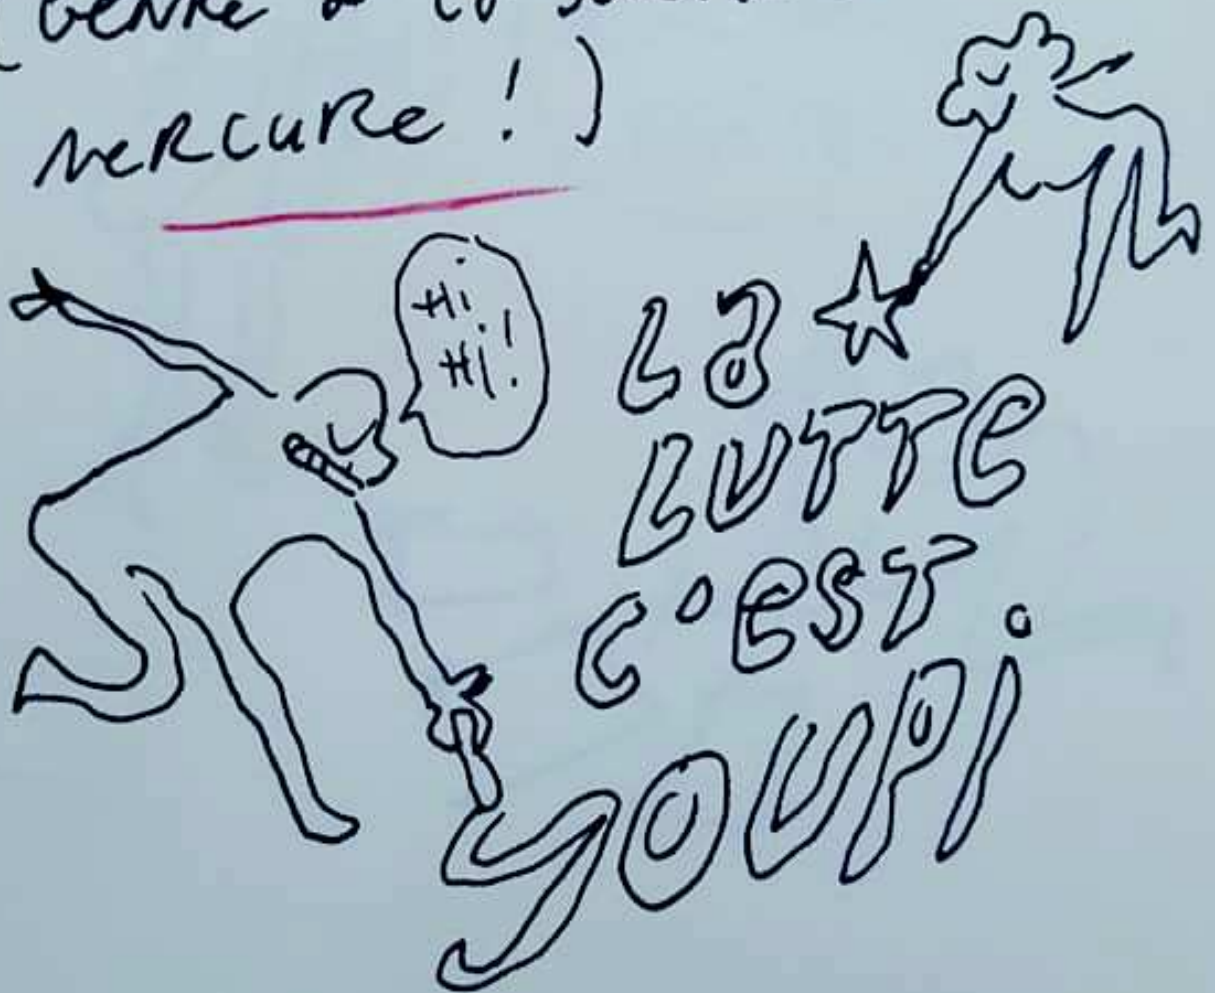 (GENRE
MERCURE ! )
Hi
Hi !
La
LUTTe
C'eST
YOUPi